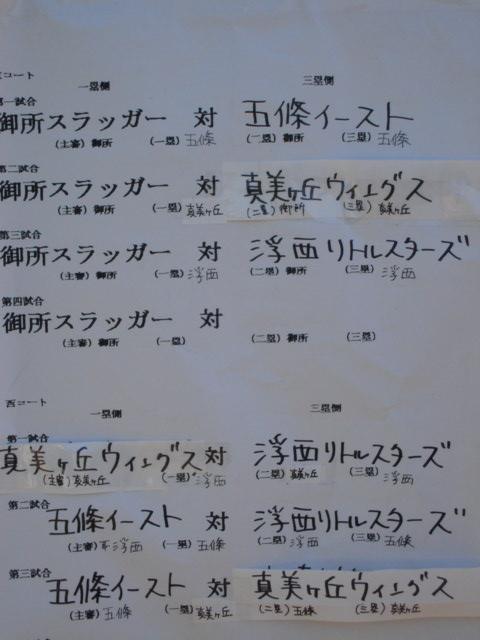 コート
一塁側 三塁側
第一試合
御所スラッガー 対 五條イースト
(主審)御所 (一塁)五條 (二塁)御所 (三塁)五條
第二試合
御所スラッガー 対 真美ヶ丘ウィングス
(主審)御所 (一塁)真美ヶ丘 (二塁)御所 (三塁)真美ヶ丘
第三試合
御所スラッガー 対 浮西リトルスターズ
(主審)御所 (一塁)浮西 (二塁)御所 (三塁)浮西
第四試合
御所スラッガー 対
(主審)御所 (一塁) (二塁)御所 (三塁)
西コート
一塁側 三塁側
第一試合
真美ヶ丘ウィングス対 浮西リトルスターズ
(主審)真美ヶ丘 (一塁)浮西 (二塁)真美ヶ丘 (三塁)浮西
第二試合
五條イースト 対 浮西リトルスターズ
(主審)浮西 (一塁)五條 (二塁)浮西 (三塁)五條
第三試合
五條イースト 対 真美ヶ丘ウィングス
(主審)五條 (一塁)真美ヶ丘 (二塁)五條 (三塁)真美ヶ丘